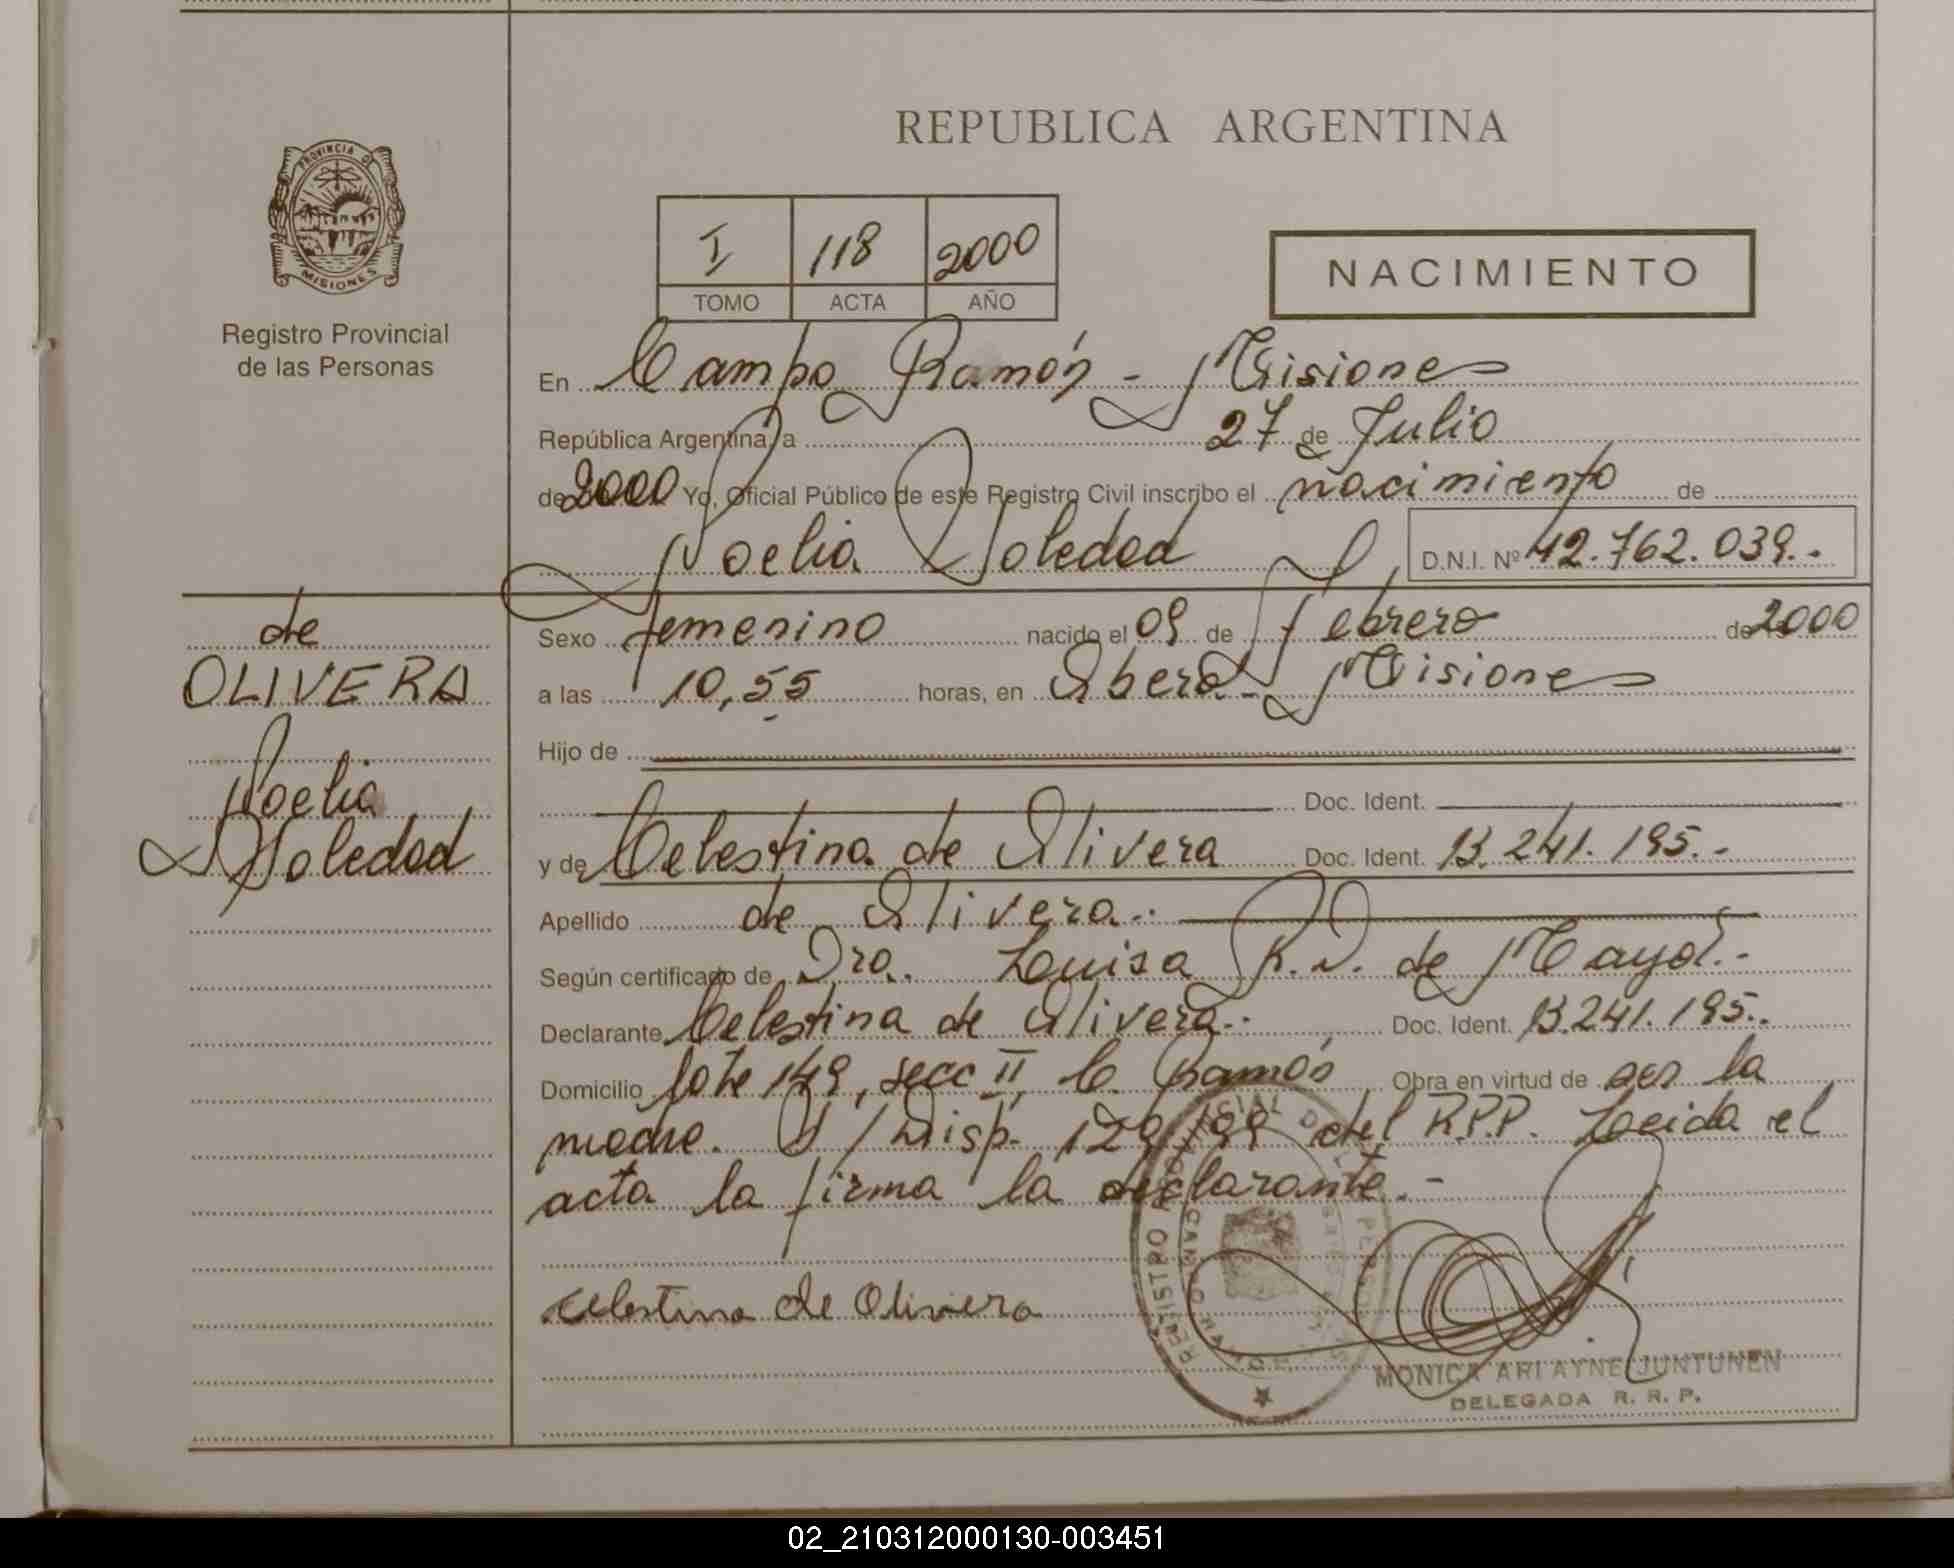 REPUBLICA ARGENTINA
PROVINCIA DE
MISIONES
Registro Provincial
de las Personas
I 118 2000
TOMO ACTA AÑO
NACIMIENTO
En Campo Ramón - Misiones
República Argentina, a 27 de Julio
de 2000 Yo, Oficial Público de este Registro Civil inscribo el nacimiento de
Noelia Soledad
D.N.I. Nº 42.762.039.-
de
OLIVERA
Noelia
Soledad
Sexo femenino nacido el 09 de febrero de 2000
a las 10,55 horas, en Oberá - Misiones
Hijo de
Doc. Ident.
y de Celestina de Olivera Doc. Ident. 13.241.195.-
Apellido de Olivera.-
Según certificado de Dra. Luisa R.D. de Mayol.-
Declarante Celestina de Olivera.- Doc. Ident. 13.241.195.-
Domicilio lote 149, secc II, C. Ramón Obra en virtud de ser la
madre. S/Disp. 129/99 del R.P.P. Leida el
acta la firma la declarante.-
celestina de Olivera
MONICA ARIAYNE JUNTUNEN
DELEGADA R. R. P.
02_210312000130-003451